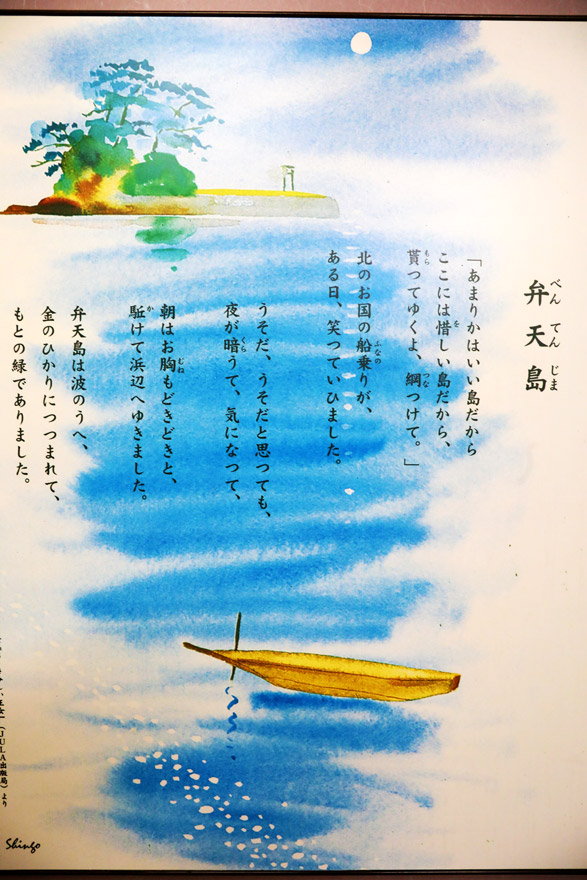 弁天島
べんてんじま
「あまりかはいい島だから
ここには惜しい島だから、
を
貰つてゆくよ、綱つけて。」
もら
つな
北のお国の船乗りが、
ふなの
ある日、笑つていひました。
うそだ、うそだと思つても、
夜が暗うて、気になつて、
くら
朝はお胸もどきどきと、
むね
駈けて浜辺へゆきました。
か
弁天島は波のうへ、
金のひかりにつつまれて、
もとの緑でありました。
(JULA出版局)より
Shingo